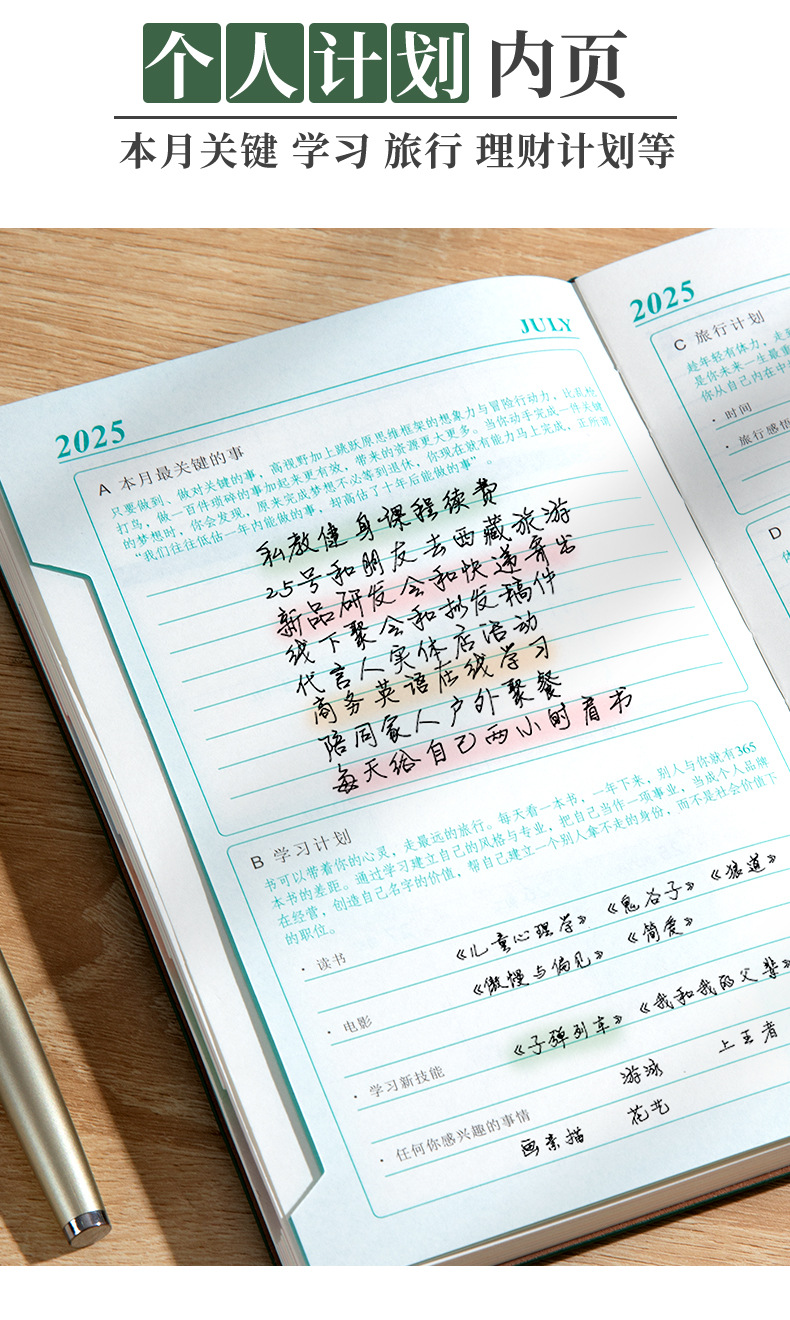 个人计划 内页
本月关键 学习 旅行 理财计划等
JULY
2025
A 本月最关键的事
只要做到、做对关键的事，高视野加上跳跃原思维框架的想象力与冒险行动力，比乱枪
打鸟，做一百件琐碎的事加起来更有效，带来的资源更大更多。当你动手完成一件关键
的梦想时，你会发现，原来完成梦想不必等到退休，你现在就有能力马上完成，正所谓
“我们往往低估一年内能做的事，却高估了十年后能做的事”。
私教健身课程续费
25号和朋友去西藏旅游
新品研发会和快递寄出
线下聚会和拟发稿件
代言人实体店活动
商务英语在线学习
陪同家人户外聚餐
每天给自己两小时看书
B 学习计划
书可以带着你的心灵，走最远的旅行。每天看一本书，一年下来，别人与你就有365
本书的差距。通过学习建立自己的风格与专业，把自己当作一项事业，当成个人品牌
在经营，创造自己名字的价值，帮自己建立一个别人拿不走的身份，而不是社会价值下
的职位。
· 读书 《儿童心理学》 《鬼谷子》 《狼道》
《傲慢与偏见》 《简爱》
· 电影
《子弹列车》 《我和我的父辈》
· 学习新技能
游泳 上王者
· 任何你感兴趣的事情
画素描 花艺
2025
C 旅行计划
趁年轻有体力，走
是你未来一生最重
你从自己内在中
· 时间
· 旅行感悟
D